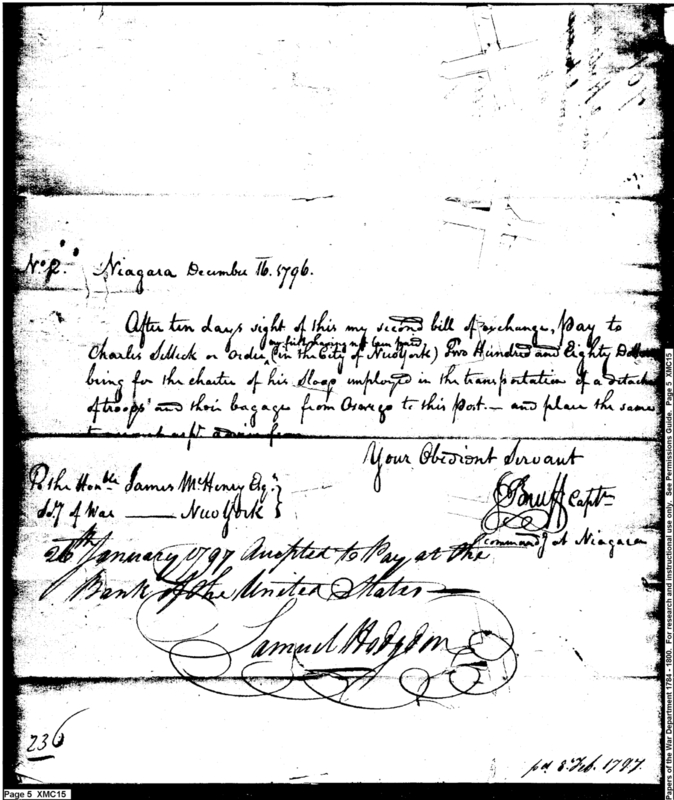 No. 2.
Niagara December 16. 1796.
After ten days sight of this my second bill of exchange, Pay to
my first having not been paid
Charles Sellick or Order (in the City of New York) Two Hundred and Eighty Dollars
being for the charter of his Sloop imployed in the transportation of a detach
of troops and their bagage from Oswego to this post. — and place the same
Your Obedient Servant
To the Honble James McHenry Esqr.
Secy of War — New York
J Bruff Captn
commandg at Niagara
26th January 1797 Accepted to Pay at the
Bank of the United States —
Samuel Hodgdon
236
pd 8 Feb. 1797.
Page 5 XMC15
Papers of the War Department 1784 - 1800. For research and instructional use only. See Permissions Guide. Page 5 XMC15